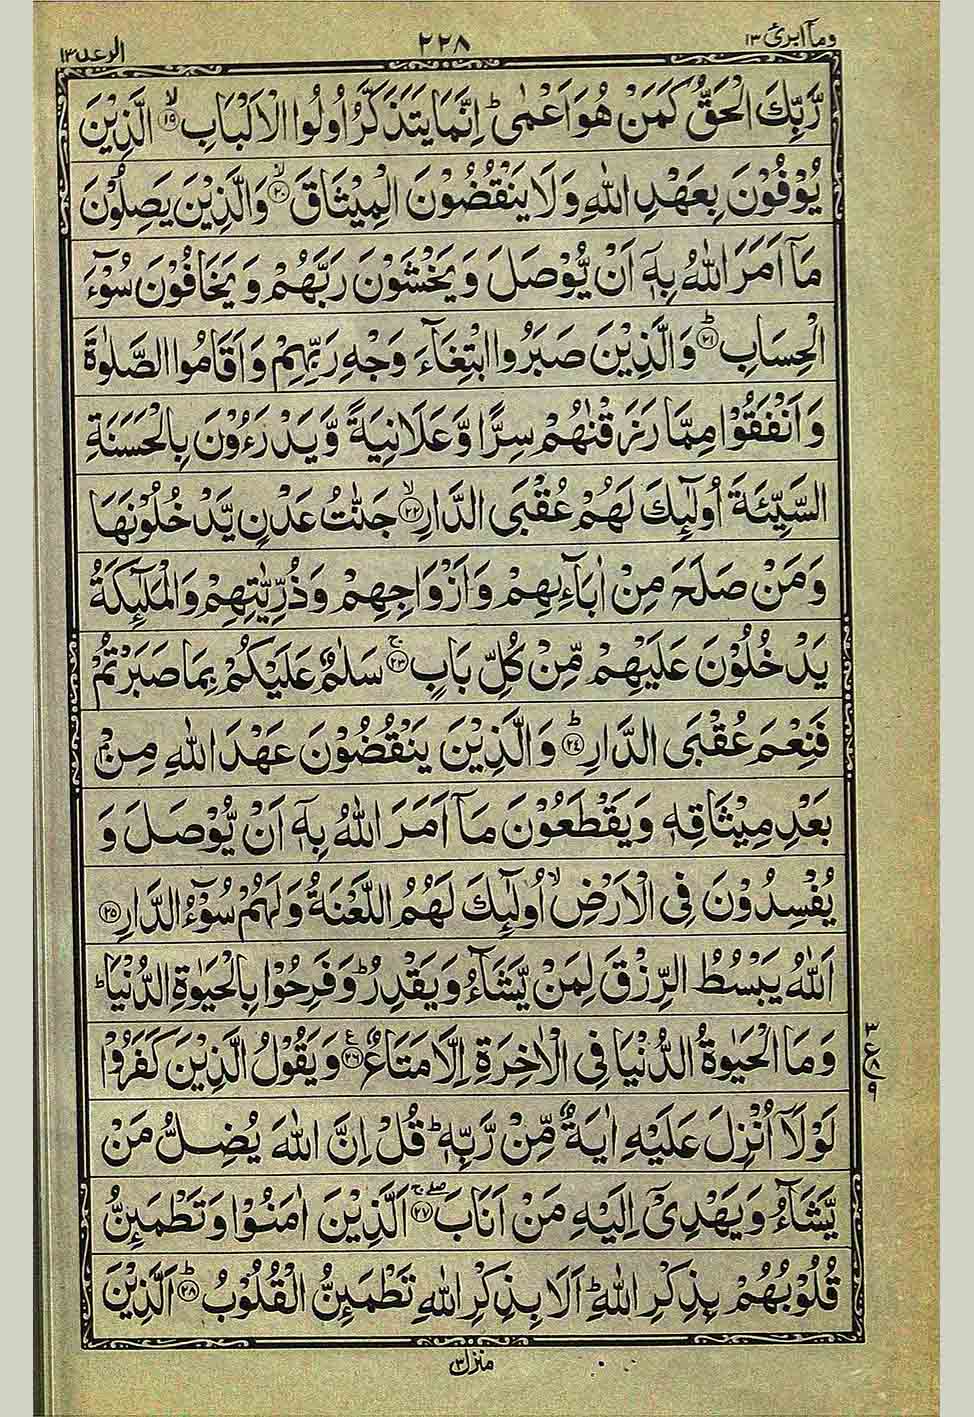 وماۤ ابرئ ١٣
٢٢٨
الرعد ١٣
رَّبِّكَ الْحَقُّ كَمَنْ هُوَ اَعْمٰىؕ اِنَّمَا يَتَذَكَّرُ اُولُوا الْاَلْبَابِۙ ١٩ الَّذِيْنَ
يُوْفُوْنَ بِعَهْدِ اللّٰهِ وَلَا يَنْقُضُوْنَ الْمِيْثَاقَۙ ٢٠ وَالَّذِيْنَ يَصِلُوْنَ
مَاۤ اَمَرَ اللّٰهُ بِهٖۤ اَنْ يُّوْصَلَ وَيَخْشَوْنَ رَبَّهُمْ وَيَخَافُوْنَ سُوْٓءَ
الْحِسَابِؕ ٢١ وَالَّذِيْنَ صَبَرُوا ابْتِغَآءَ وَجْهِ رَبِّهِمْ وَاَقَامُوا الصَّلٰوةَ
وَاَنْفَقُوْا مِمَّا رَزَقْنٰهُمْ سِرًّا وَّعَلَانِيَةً وَّيَدْرَءُوْنَ بِالْحَسَنَةِ
السَّيِّئَةَ اُولٰٓئِكَ لَهُمْ عُقْبَى الدَّارِۙ ٢٢ جَنّٰتُ عَدْنٍ يَّدْخُلُوْنَهَا
وَمَنْ صَلَحَ مِنْ اٰبَآئِهِمْ وَاَزْوَاجِهِمْ وَذُرِّيّٰتِهِمْ وَالْمَلٰٓئِكَةُ
يَدْخُلُوْنَ عَلَيْهِمْ مِّنْ كُلِّ بَابٍۚ ٢٣ سَلٰمٌ عَلَيْكُمْ بِمَا صَبَرْتُمْ
فَنِعْمَ عُقْبَى الدَّارِؕ ٢٤ وَالَّذِيْنَ يَنْقُضُوْنَ عَهْدَ اللّٰهِ مِنْۢ
بَعْدِ مِيْثَاقِهٖ وَيَقْطَعُوْنَ مَاۤ اَمَرَ اللّٰهُ بِهٖۤ اَنْ يُّوْصَلَ وَ
يُفْسِدُوْنَ فِى الْاَرْضِۙ اُولٰٓئِكَ لَهُمُ اللَّعْنَةُ وَلَهُمْ سُوْٓءُ الدَّارِ ٢٥
اَللّٰهُ يَبْسُطُ الرِّزْقَ لِمَنْ يَّشَآءُ وَيَقْدِرُؕ وَفَرِحُوْا بِالْحَيٰوةِ الدُّنْيَاؕ
وَمَا الْحَيٰوةُ الدُّنْيَا فِى الْاٰخِرَةِ اِلَّا مَتَاعٌ ٢٦ وَيَقُوْلُ الَّذِيْنَ كَفَرُوْا
لَوْلَاۤ اُنْزِلَ عَلَيْهِ اٰيَةٌ مِّنْ رَّبِّهٖؕ قُلْ اِنَّ اللّٰهَ يُضِلُّ مَنْ
يَّشَآءُ وَيَهْدِىْۤ اِلَيْهِ مَنْ اَنَابَۖۚ ٢٧ اَلَّذِيْنَ اٰمَنُوْا وَتَطْمَئِنُّ
قُلُوْبُهُمْ بِذِكْرِ اللّٰهِؕ اَلَا بِذِكْرِ اللّٰهِ تَطْمَئِنُّ الْقُلُوْبُؕ ٢٨ اَلَّذِيْنَ
منزل ٣